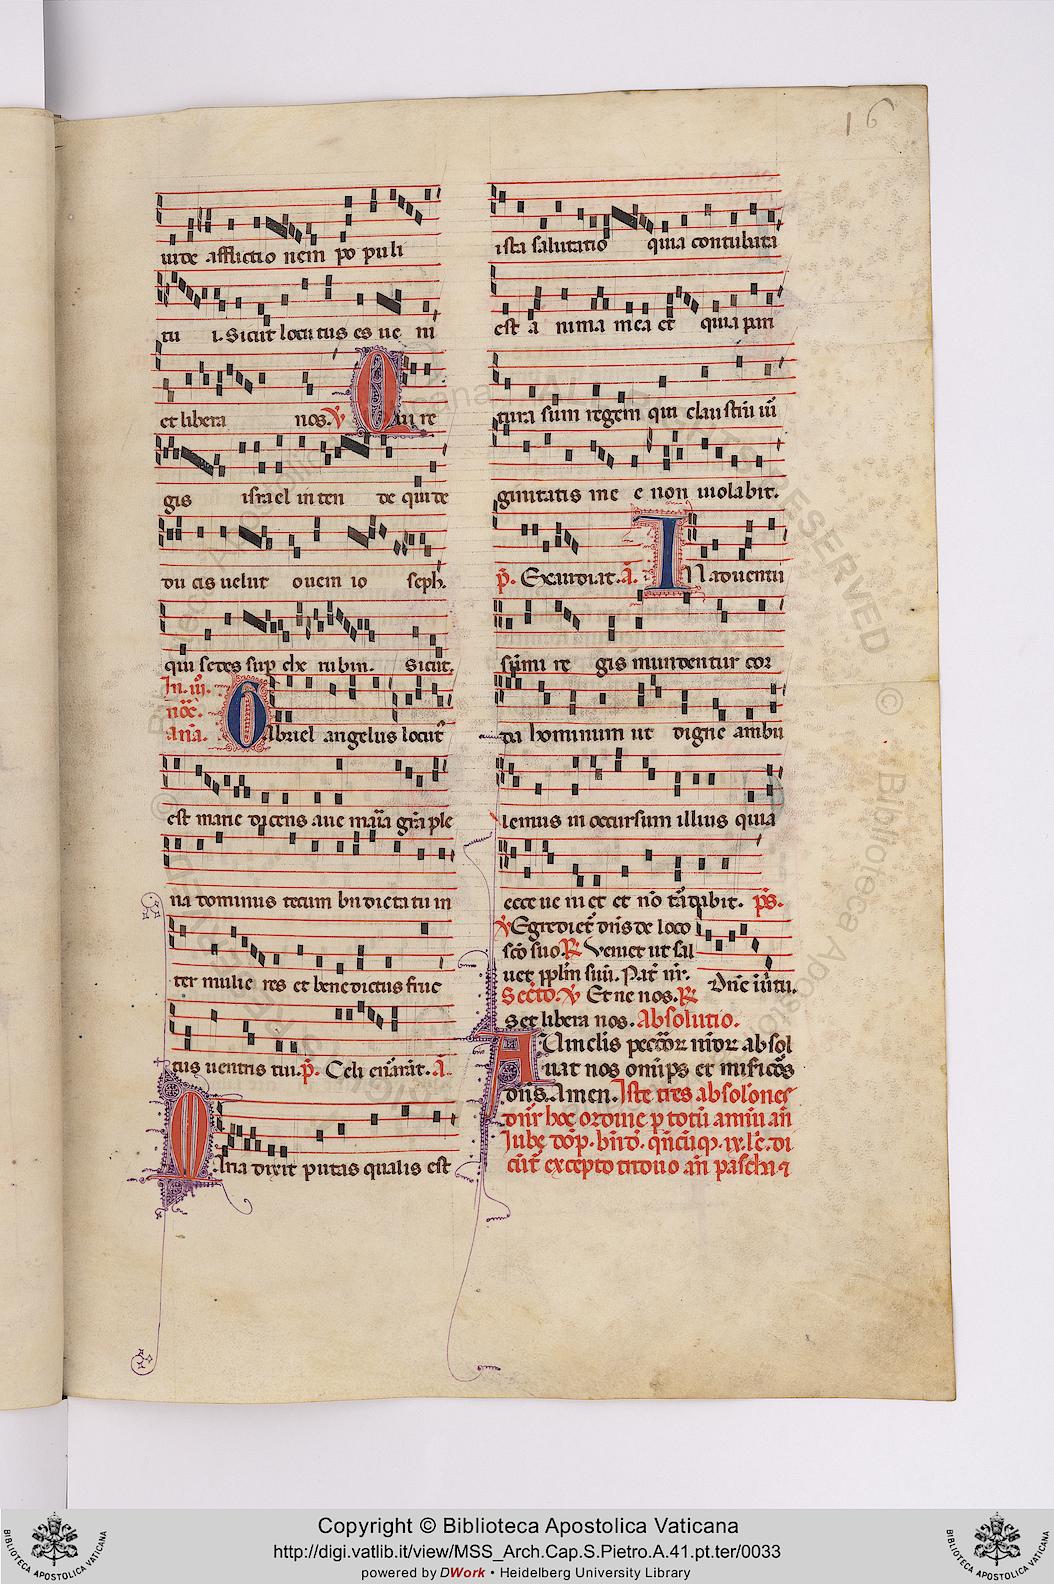 16
uide afflictio nem po puli
tu i. Sicut locutus es ue ni
et libera nos. V Qui re
gis israel inten de qui de
du cis uelut ouem io seph.
qui sedes sup che rubin. Sicut.
In. iij.
noc̄.
ana. Gabriel angelus locut᷒
est marie dicens aue maria gr̄a ple
na dominus tecum bn̄dicta tu in
ter mulie res et benedictus fruc
tus uentris tui. p̄. Celi enārāt. A.
Maria dixit putas qualis est
ista salutatio quia conturbata
est a nima mea et quia pari
tura sum regem qui claustrū uir
ginitatis me e non uiolabit.
p̄. Exaudiat. A. In aduentu
sūmi re gis mundentur cor
da hominum ut digne ambu
lemus in occursum illius quia
ecce ue ni et et nō tardabit. ps.
V Egrediet᷒ dn̄s de loco
sc̄o suo. R Veniet ut sal
uet pp̄lm suū. Pat᷒ nr̄.
Secto. V Et ne nos. R
Set libera nos. Absolutio.
A uinclis pecc̄or nr̄or absol
uat nos om̄ips et misicōs
dn̄s. Amen. Iste tres absolōnes
dn̄r hoc ordine p totū annū an̄
Iube dōp. bn̄dō. qn̄cūq. ix. lc̄. di
cūt᷒ excepto triduo an̄ pascha ⁊
Copyright © Biblioteca Apostolica Vaticana
http://digi.vatlib.it/view/MSS_Arch.Cap.S.Pietro.A.41.pt.ter/0033
powered by DWork • Heidelberg University Library
BIBLIOTECA APOSTOLICA VATICANA
BIBLIOTECA APOSTOLICA VATICANA